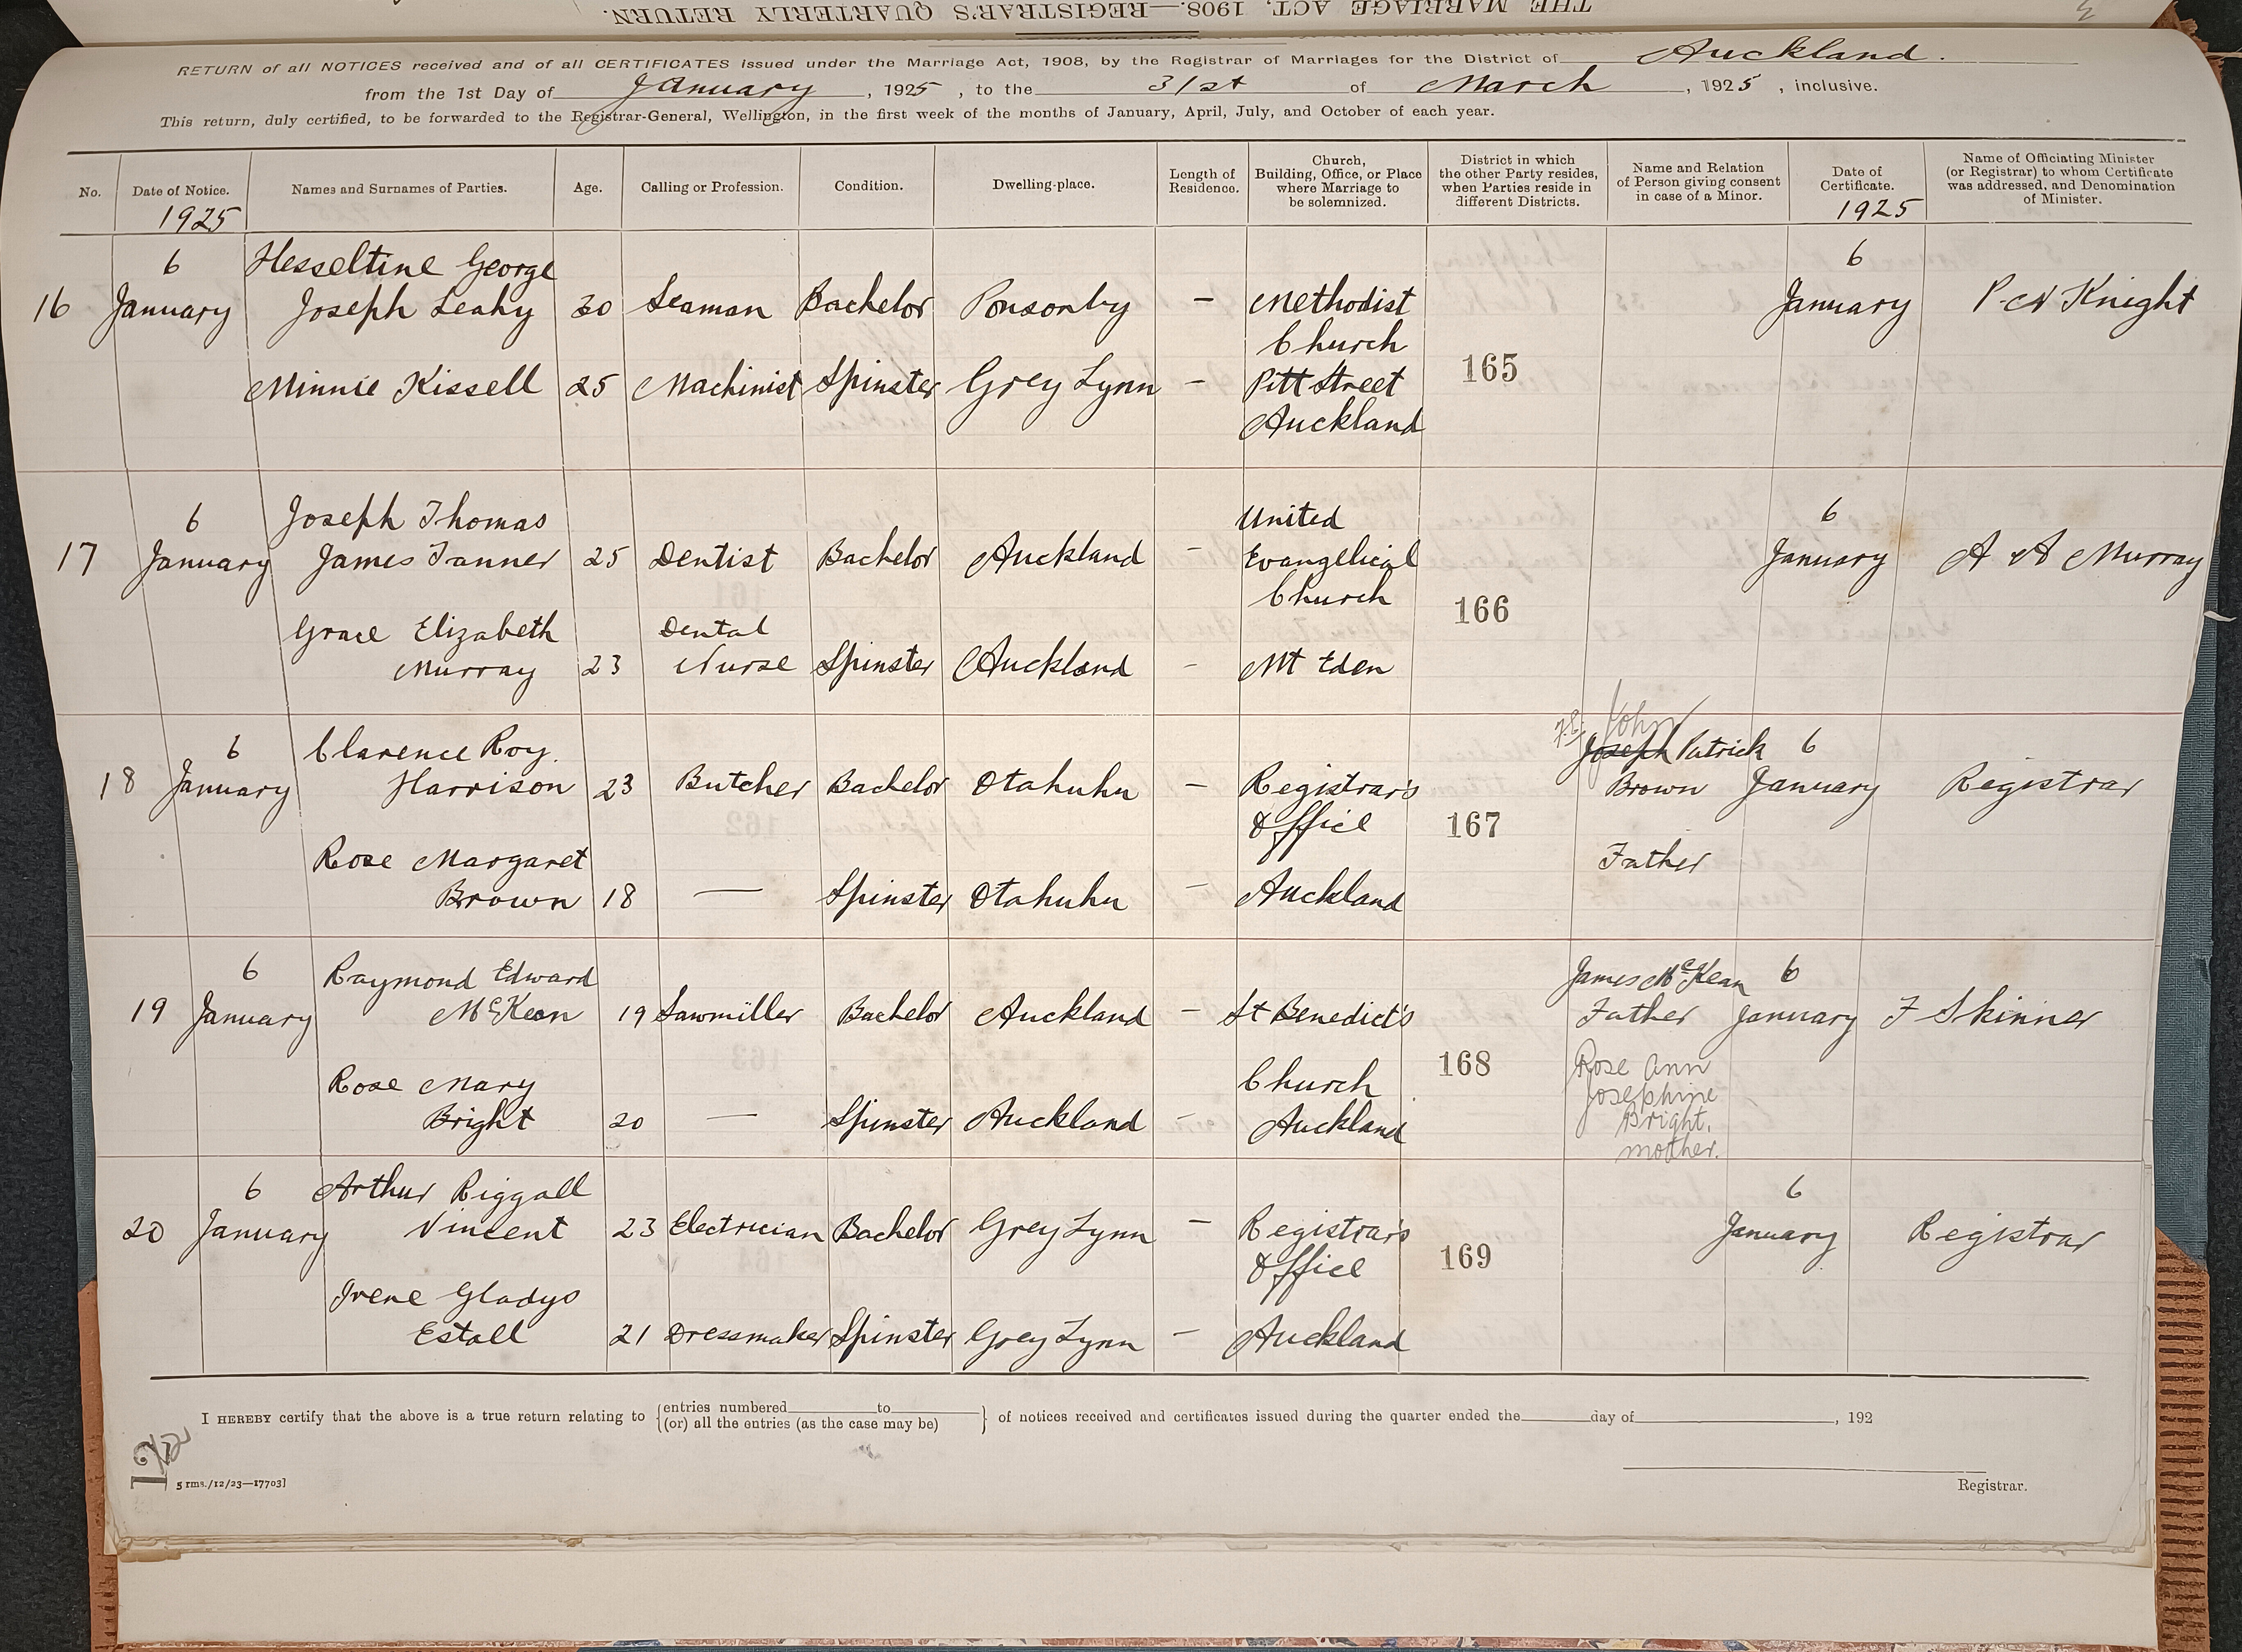 THE MARRIAGE ACT, 1908.—REGISTRAR'S QUARTERLY RETURN.
RETURN of all NOTICES received and of all CERTIFICATES issued under the Marriage Act, 1908, by the Registrar of Marriages for the District of Auckland.
from the 1st Day of January, 1925, to the 31st of March, 1925, inclusive.
This return, duly certified, to be forwarded to the Registrar-General, Wellington, in the first week of the months of January, April, July, and October of each year.
No. Date of Notice. Names and Surnames of Parties. Age. Calling or Profession. Condition. Dwelling-place. Length of Residence. Church, Building, Office, or Place where Marriage to be solemnized. District in which the other Party resides, when Parties reside in different Districts. Name and Relation of Person giving consent in case of a Minor. Date of Certificate. Name of Officiating Minister (or Registrar) to whom Certificate was addressed, and Denomination of Minister.
1925 1925
6 Hesseltine George 6
16 January Joseph Leahy 30 Seaman Bachelor Ponsonby – Methodist January P N Knight
Church
165
Minnie Kissell 25 Machinist Spinster Grey Lynn – Pitt Street
Auckland
6 Joseph Thomas United 6
17 January James Tanner 25 Dentist Bachelor Auckland – Evangelical January A A Murray
Church
166
Grace Elizabeth Dental
Murray 23 Nurse Spinster Auckland – Mt Eden
John
6 Clarence Roy. Joseph Patrick 6
18 January Harrison 23 Butcher Bachelor Otahuhu – Registrar's Brown January Registrar
Office 167
Rose Margaret Father
Brown 18 — Spinster Otahuhu – Auckland
6 Raymond Edward James McKean 6
19 January McKean 19 Sawmiller Bachelor Auckland – St Benedict's Father January F Skinner
168 Rose Ann
Rose Mary Church Josephine
Bright 20 — Spinster Auckland – Auckland Bright,
mother.
6 Arthur Riggall 6
20 January Vincent 23 Electrician Bachelor Grey Lynn – Registrar's January Registrar
Office 169
Irene Gladys
Estall 21 Dressmaker Spinster Grey Lynn – Auckland
I HEREBY certify that the above is a true return relating to {entries numbered to (or) all the entries (as the case may be)} of notices received and certificates issued during the quarter ended the day of , 192
5 rms./12/23—17703]
Registrar.